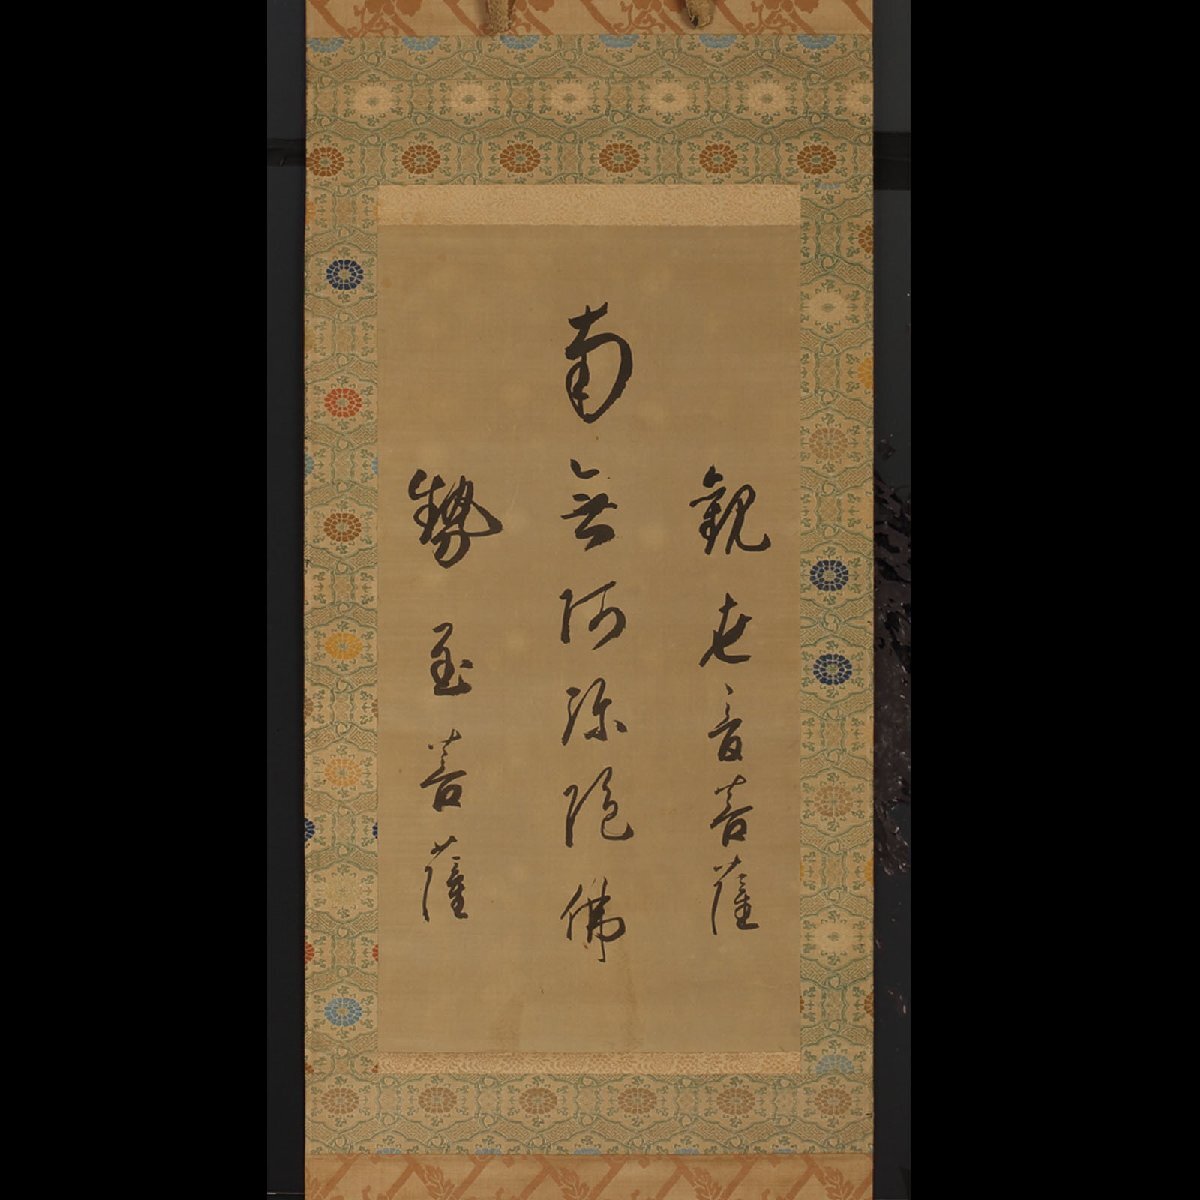 観世音菩薩
南無阿弥陀佛
勢至菩薩